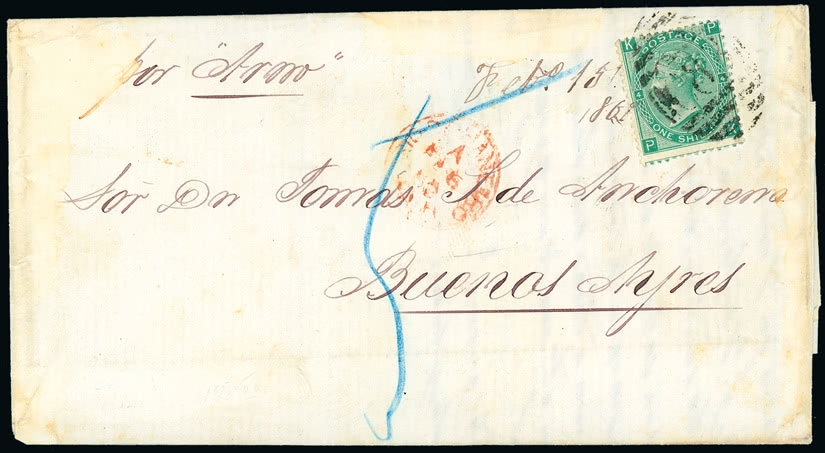 por "Arno"
Feb.o 15
186
K P
POSTAGE
4 4
ONE SHI
P
Sor Dn Tomás S. de Anchorena
Buenos Ayres